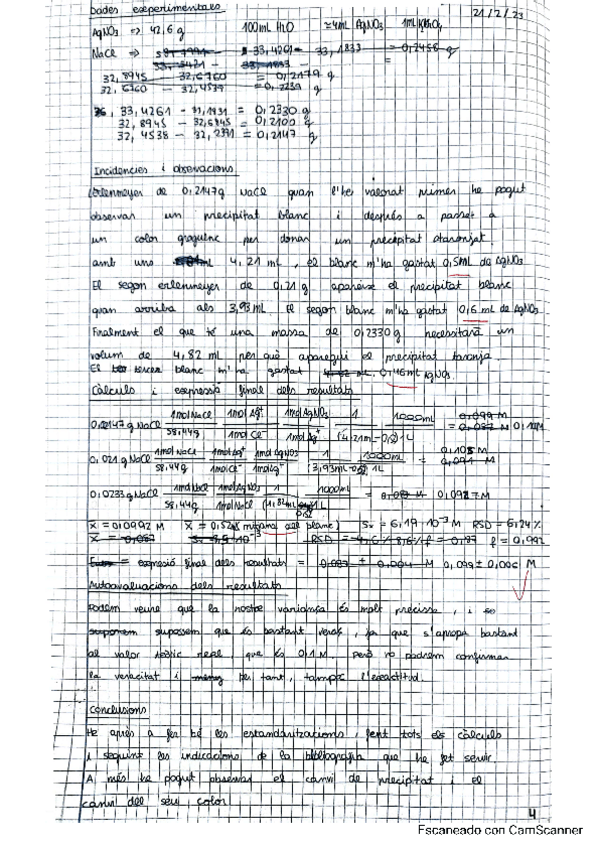 Dades experimentals 21/2/23
AgNO3 => 42,6 g 100mL H2O ≈4mL AgNO3 1mL
NaCl => 33,4261 - 33,1833 = 0,2456 g
32,8945 - 32,6760 = 0,2179 g
32,6760 - 32,4539 = 0,2239 g
33,4261 - 31,1931 = 0,2330 g
32,8945 - 32,6845 = 0,2100 g
32,4538 - 32,2391 = 0,2147 g
Incidencies i observacions
Erlenmeyer de 0,2147g NaCl quan l'he valorat primer he pogut
observar un precipitat blanc i després a passat a
un color groguenc per donar un precipitat ataronjat
amb uns 4,21 mL, el blanc m'ha gastat 0,5mL de AgNO3
El segon erlenmeyer de 0,21 g apareixe el precipitat blanc
quan arriba als 3,93 mL. El segon blanc m'ha gastat 0,6 mL de AgNO3
Finalment el que té una massa de 0,2330g necessitarà un
volum de 4,82 ml per què aparegui el precipitat taronja.
El tercer blanc m'ha gastat 0,46mL AgNO3.
Càlculs i expressió final dels resultats
0,02147g NaCl 1molNaCl 1molAg+ 1molAgNO3 1 1000mL = 0,087 M
58,44g 1molCl- 1molAg+ (4,21ml-0,52) 1L
0,021 g NaCl 1molNaCl 1molAg+ 1molAgNO3 1 1000mL = 0,105 M
58,44g 1molCl- 1molAg+ (3,93mL-0,52) 1L
0,0233g NaCl 1molNaCl 1molAg+ 1molAgNO3 1 1000mL = 0,0927M
58,44g 1molNaCl
x̄ = 0,0992 M x̄ = 0,52 (mitjana del blanc) Sx = 6,19·10-3 M RSD = 6,24%
= expressió final dels resultats = 0,087 ± 0,004 M 0,099 ± 0,006 M
Autoavaluacions dels resultats
Podem veure que la nostre variança és molt precissa, i en
suposem que és bastant veraç, ja que s'apropa bastant
al valor teòric real, que és 0,1 M. però no podrem confirmar
la veracitat i per tant, tampoc l'exactitud.
Conclusions
He après a fer bé les estandaritzacions, fent tots els càlculs
i seguint les indicacions de la bibliografia que he fet servir.
A més he pogut observar el canvi de precipitat i el
canvi del seu color
4
Escaneado con CamScanner